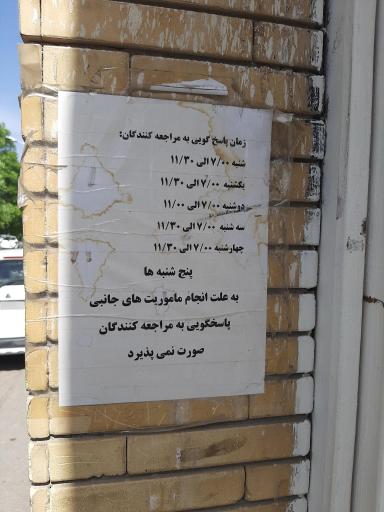 زمان پاسخ گویی به مراجعه کنندگان:
شنبه ۷/۰۰ الی ۱۱/۳۰
یکشنبه ۷/۰۰ الی ۱۱/۳۰
دوشنبه ۷/۰۰ الی ۱۱/۰۰
سه شنبه ۷/۰۰ الی ۱۱/۳۰
چهارشنبه ۷/۰۰ الی ۱۱/۳۰
پنج شنبه ها
به علت انجام ماموریت های جانبی
پاسخگویی به مراجعه کنندگان
صورت نمی پذیرد